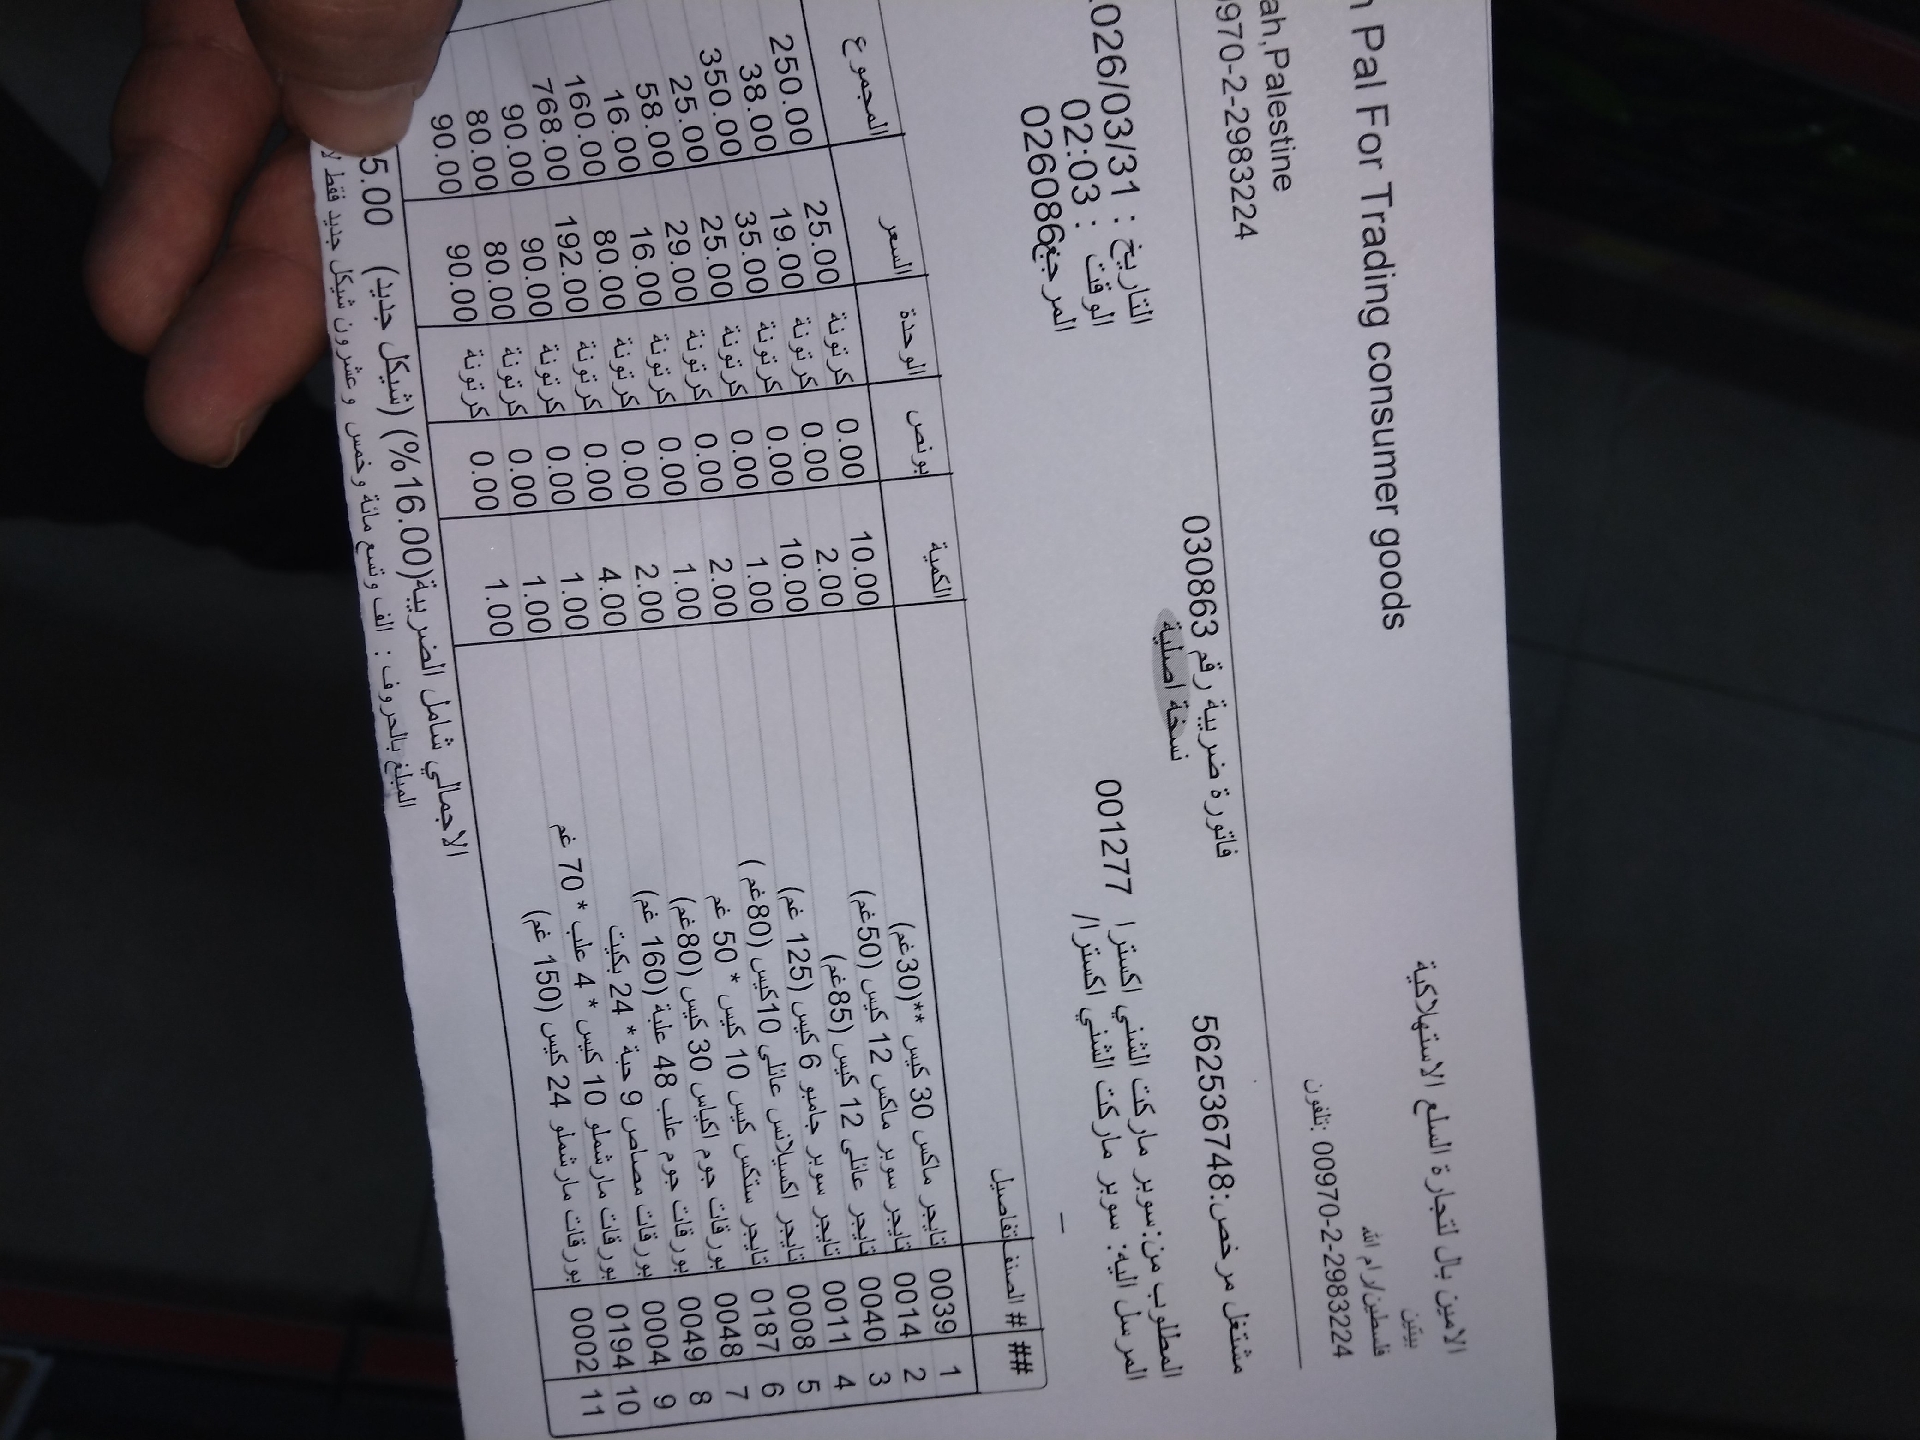 Pal For Trading consumer goods
الامين بال لتجارة السلع الاستهلاكية
بيتين
ah,Palestine
فلسطين/رام الله
970-2-2983224
تلفون: 00970-2-2983224
فاتورة ضريبية رقم 030863
مشتغل مرخص:562536748
نسخة اصلية
المطلوب من: سوبر ماركت الشني اكسترا 001277
المرسل اليه: سوبر ماركت الشني اكسترا/
التاريخ : 026/03/31
الوقت : 02:03
المرجع 026086
_
## الصنف # تفاصيل الكمية بونص الوحدة السعر المجموع
1 0039 تايجر ماكس 30 كيس **(30غم) 10.00 0.00 كرتونة 25.00 250.00
2 0014 تايجر سوبر ماكس 12 كيس (50غم) 2.00 0.00 كرتونة 19.00 38.00
3 0040 تايجر عائلي 12 كيس (85غم) 10.00 0.00 كرتونة 35.00 350.00
4 0011 تايجر سوبر جامبو 6 كيس (125 غم) 1.00 0.00 كرتونة 25.00 25.00
5 0008 تايجر اكسيلانس عائلي 10كيس (80غم) 2.00 0.00 كرتونة 29.00 58.00
6 0187 تايجر ستكس كيس 10 كيس * 50 غم 1.00 0.00 كرتونة 16.00 16.00
7 0048 بورقات جوم اكياس 30 كيس (80غم) 2.00 0.00 كرتونة 80.00 160.00
8 0049 بورقات جوم علب 48 علبة (160 غم) 4.00 0.00 كرتونة 192.00 768.00
9 0004 بورقات مصاص 9 حبة * 24 بكيت 1.00 0.00 كرتونة 90.00 90.00
10 0194 بورقات مارشملو 10 كيس * 4 علب * 70 غم 1.00 0.00 كرتونة 80.00 80.00
11 0002 بورقات مارشملو 24 كيس (150 غم) 1.00 0.00 كرتونة 90.00 90.00
الاجمالي شامل الضريبة(16.00 %) (شيكل جديد) 5.00
المبلغ بالحروف : الف وتسع مائة وخمس وعشرون شيكل جديد فقط لا